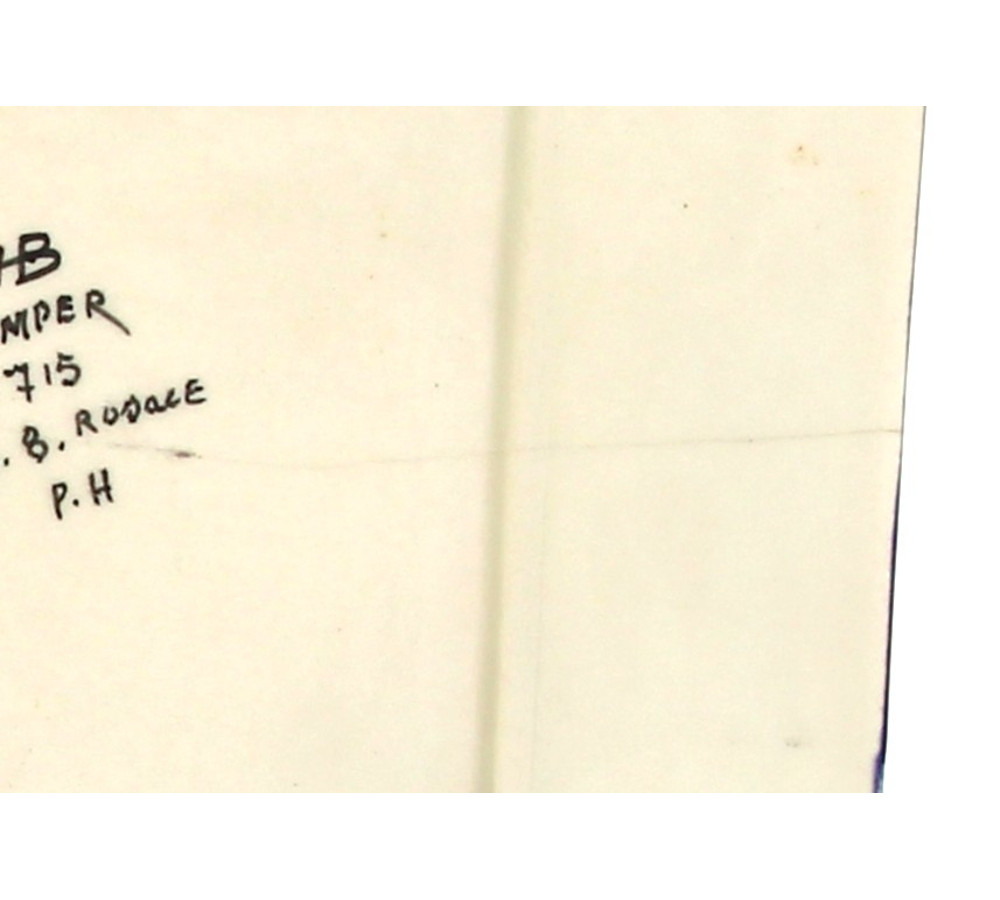 HB
MPER
715
. B. RODALE
P.H